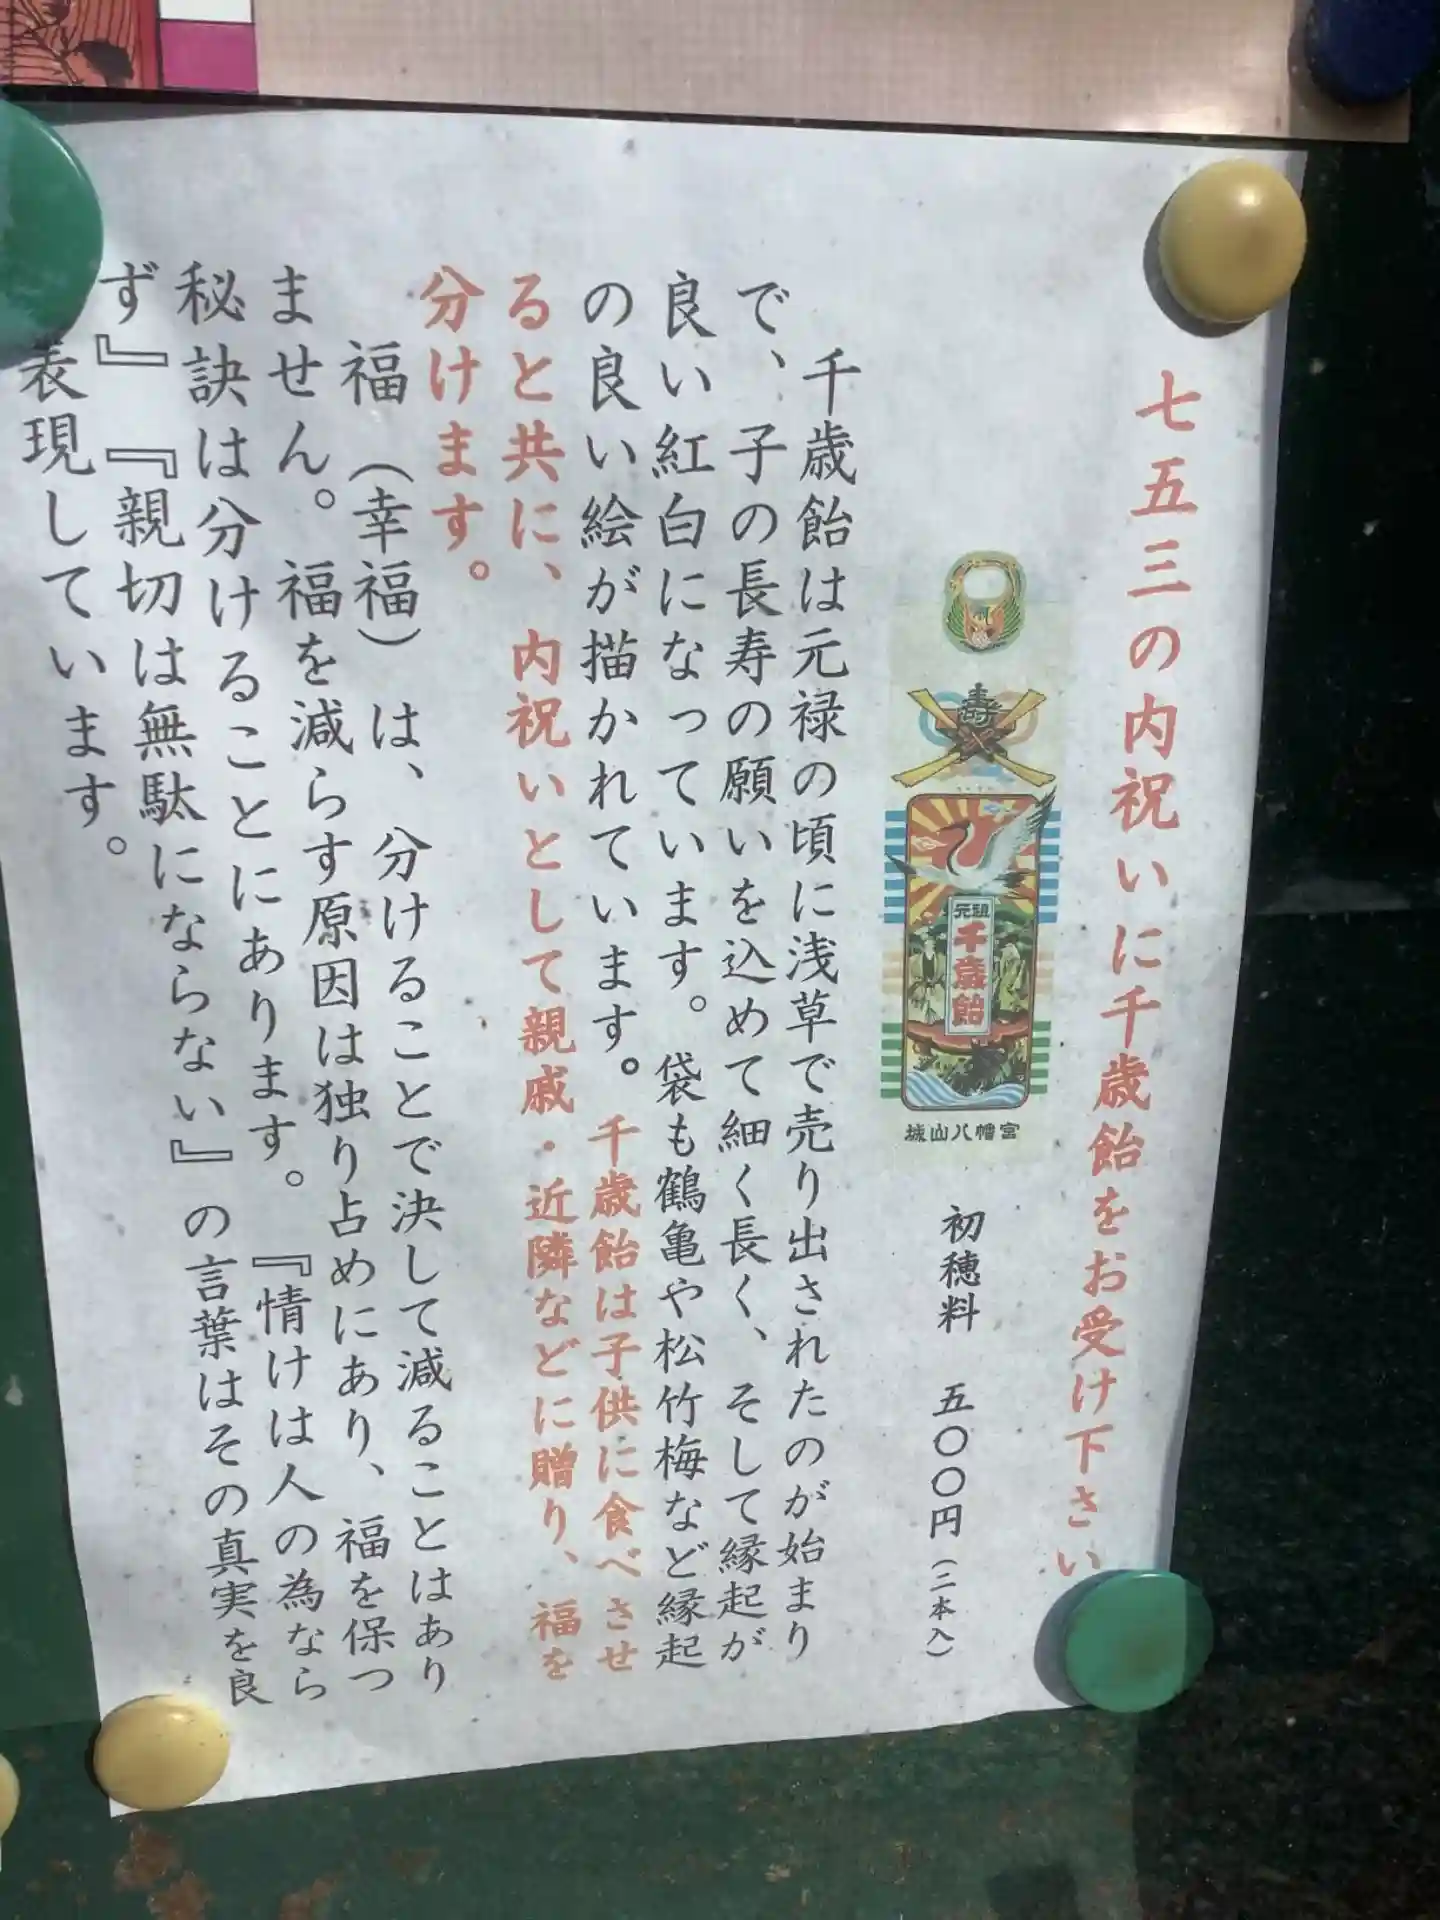 七五三の内祝いに千歳飴をお受け下さい
寿
元祖
千歳飴
城山八幡宮
初穂料 五〇〇円(二本入)
千歳飴は元禄の頃に浅草で売り出されたのが始まり
で、子の長寿の願いを込めて細く長く、そして縁起が
良い紅白になっています。袋も鶴亀や松竹梅など縁起
の良い絵が描かれています。千歳飴は子供に食べさせ
ると共に、内祝いとして親戚・近隣などに贈り、福を
分けます。
福(幸福)は、分けることで決して減ることはあり
ません。福を減らす原因は独り占めにあり、福を保つ
秘訣は分けることにあります。『情けは人の為なら
ず』『親切は無駄にならない』の言葉はその真実を良
表現しています。